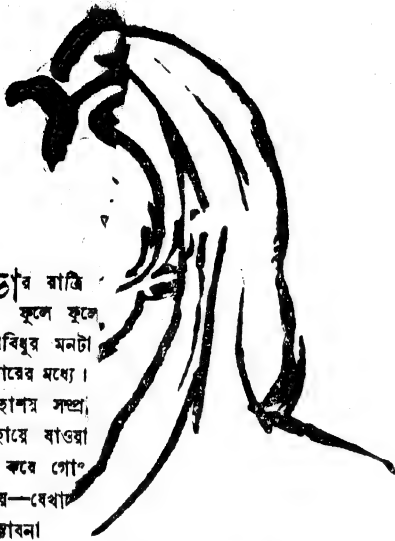 র রাত্রি
ফুলে ফুলে
বিধুর মনটা
রের মধ্যে।
হাশয় সম্প্র
হায়ে যাওয়া
করে গো
য়—যেখা
ভাবনা